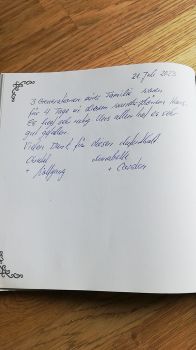 21. Juli 2023
3 Generationen einer Familie waren
für 4 Tage in diesem wunderschönen Haus.
Es hat uns allen sehr
gut gefallen.
Vielen Dank für diesen Aufenthalt.
Annabelle
+ Wolfgang + Carsten